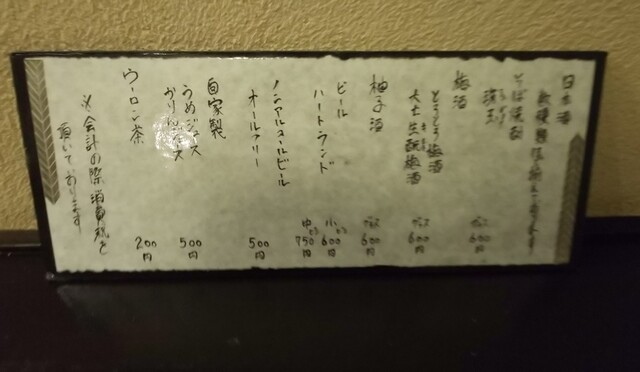 日本酒
数種類取り揃えております
そば焼酎
グラス 600円
梅酒
とろとろ梅酒
グラス 600円
柚子酒
グラス 600円
ビール
ハートランド
小びん 600円
中びん 750円
ノンアルコールビール
オールフリー
500円
自家製
うめジュース
かりんジュース
500円
ウーロン茶
200円
※会計の際消費税を
頂いております